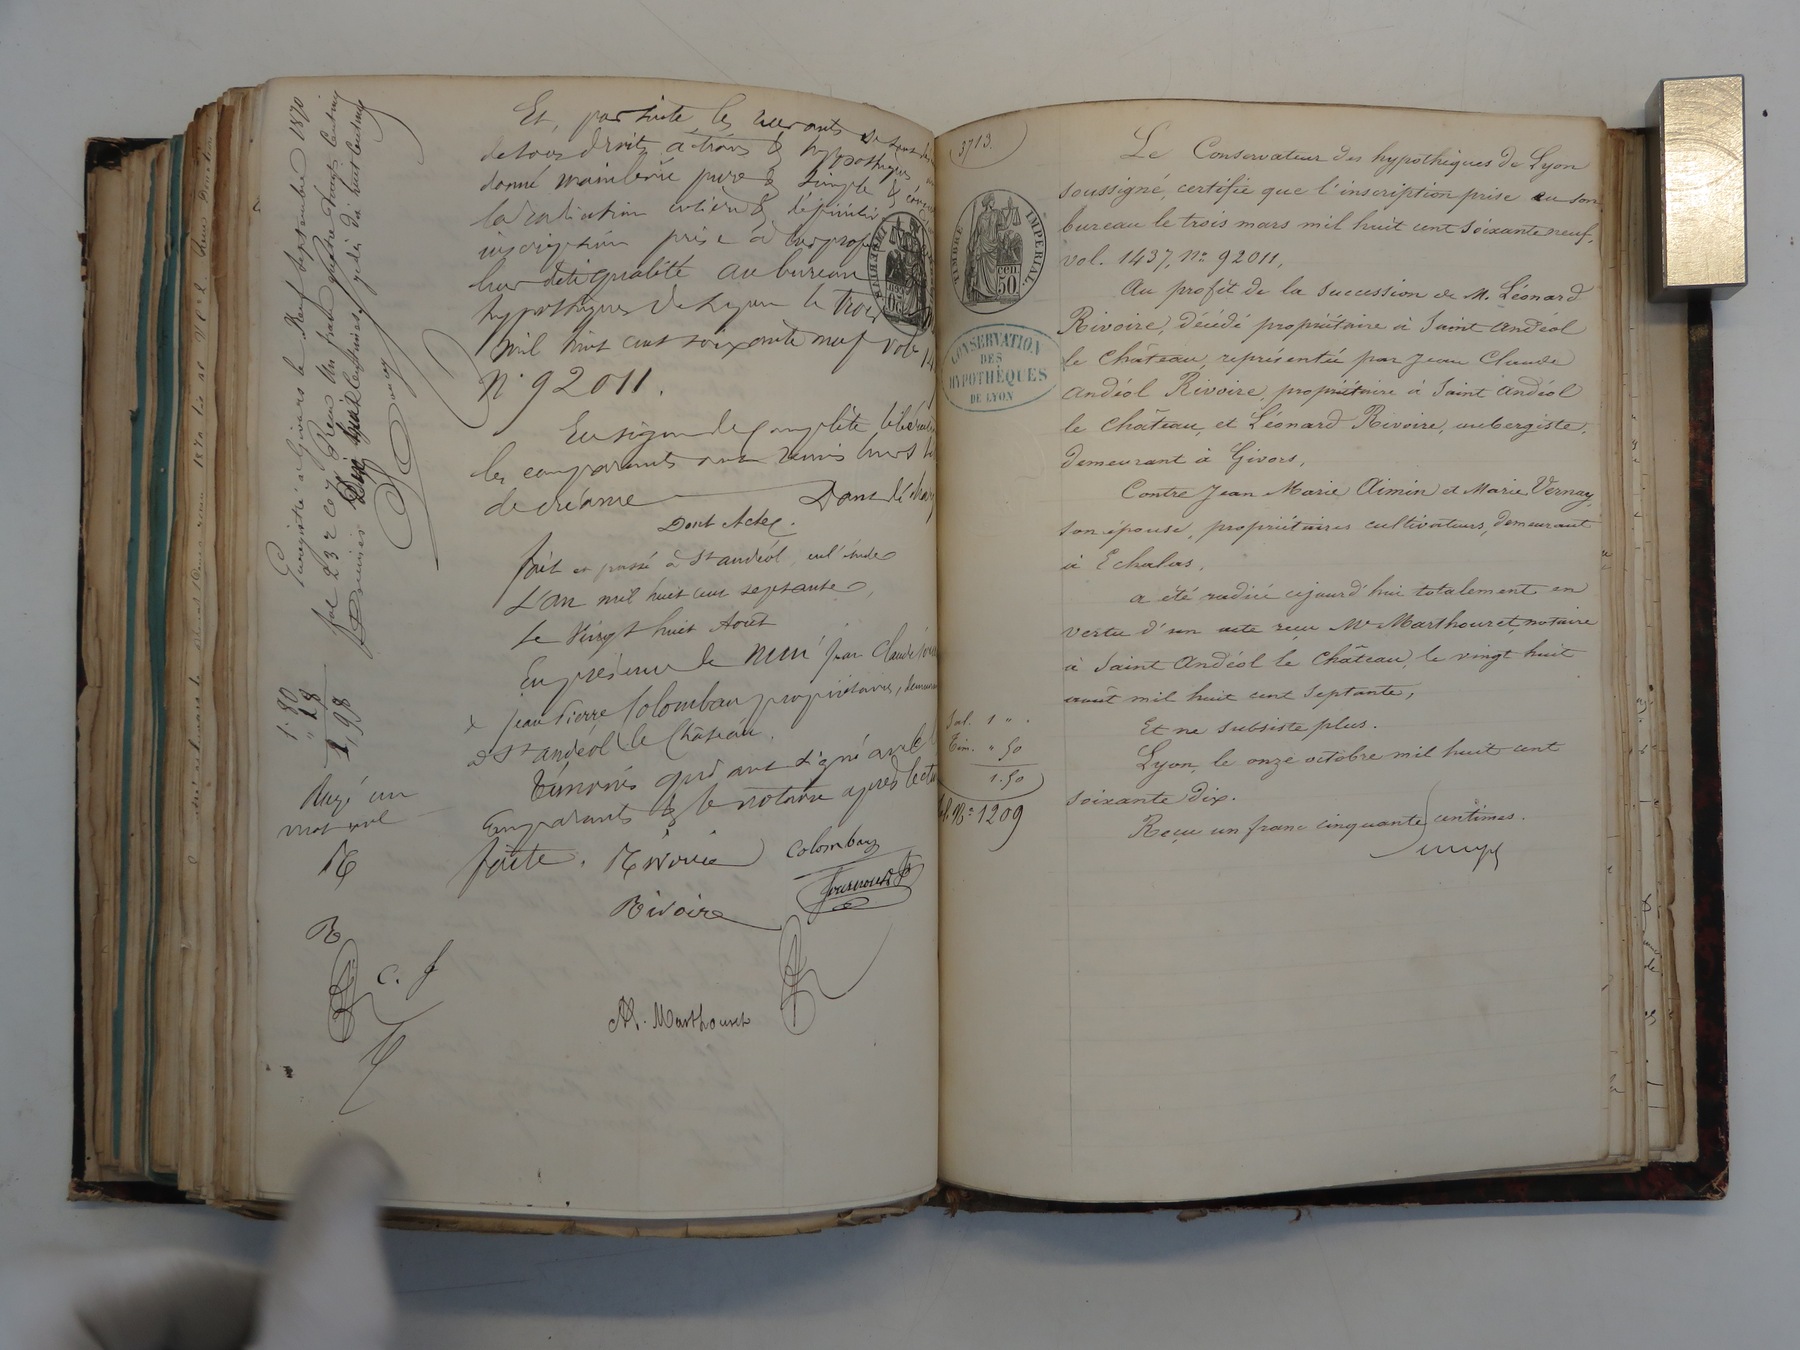 Et, par suite les
de tous droits, actions & hypothèques
donné mainlevée pure & simple &
la radiation entière & définitive
inscription prise à leur prof
leur dite qualité au bureau
hypothèques de Lyon le trois
mil huit cent soixante neuf vol. 14
N° 92011.
En signe de complète libérat
les comparants ont remis leurs ti
de créance Dont décharg
Dont Acte.
fait et passé à St andéol, en l'étude
L'an mil huit cent septante,
Le Vingt huit Août
En présence de jean Claude
& jean Pierre Colomban propriétaires, demeurant
à St andéol le Château.
Témoins qui ont signé avec l
comparants & le notaire après lectu
faite. Rivoire Colomban
Rivoire
M. Marthouret
Enregistré à Givors le Neuf Septembre 1870
fol 23 r c 7 Reçu Un franc quatre vingts centimes
1.80
" 18
1,98
Rayé un
mot nul
R
R
C. f
3713.
TIMBRE IMPÉRIAL
50 CEN.
CONSERVATION
DES
HYPOTHÈQUES
DE LYON
Le Conservateur des hypothèques de Lyon
soussigné, certifie que l'inscription prise au son
bureau le trois mars mil huit cent soixante neuf,
vol. 1437, n° 92011,
Au profit de la succession de M. Léonard
Rivoire, décédé propriétaire à Saint Andéol
le Château, représentée par Jean Claude
Andéol Rivoire, propriétaire à Saint Andéol
le Château, et Léonard Rivoire, aubergiste,
demeurant à Givors,
Contre Jean Marie Aimin et Marie Vernay,
son épouse, propriétaires cultivateurs, demeurant
à Echalas,
a été radiée cejourd'hui totalement en
vertu d'un acte reçu Me Marthouret, notaire
à Saint Andéol le Château, le vingt huit
août mil huit cent septante,
Et ne subsiste plus.
Lyon, le onze octobre mil huit cent
soixante dix.
Reçu un franc cinquante centimes.
Sal. 1 "
Tim. " 50
1.50
N° 1209